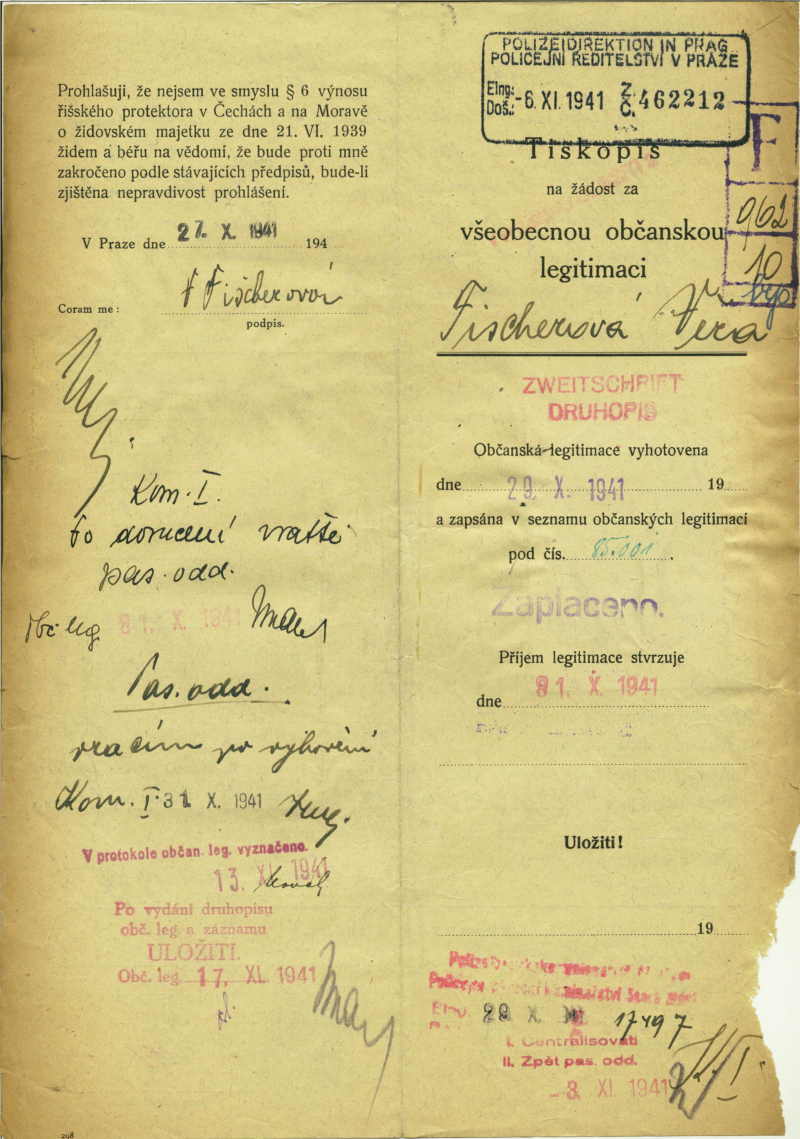 Prohlašuji, že nejsem ve smyslu § 6 výnosu
říšského protektora v Čechách a na Moravě
o židovském majetku ze dne 21. VI. 1939
židem a beru na vědomí, že bude proti mně
zakročeno podle stávajících předpisů, bude-li
zjištěna nepravdivost prohlášení.
V Praze dne 27. X. 1941 194
V Fischerová
Coram me :
podpis.
Kom. I.
po doručení vraťte
pas. odd.
Obč leg 31. X. 1941
Pas. odd.
vracím po vyhovění
Kom. I. 31 X. 1941
V protokole občan. leg. vyznačeno.
13. XI. 1941
Po vydání druhopisu
obč. leg. a záznamu
ULOŽITI.
Obč. leg. 17. XI. 1941
298
POLIZEIDIREKTION IN PRAG
POLICEJNÍ ŘEDITELSTVÍ V PRAZE
Eing.: Doš.: -6. XI. 1941 Z. Č. 462212
Tiskopis
na žádost za
všeobecnou občanskou
legitimaci
F
962
10
Fischerová Věra
ZWEITSCHRIFT
DRUHOPIS
Občanská legitimace vyhotovena
dne 29. X. 1941 19
a zapsána v seznamu občanských legitimací
pod čís. 85.001.
Zaplaceno.
Příjem legitimace stvrzuje
dne 31. X. 1941
Uložiti!
19
29 X. 17497
I. Centralisovati
II. Zpět pas. odd.
-3. XI. 1941